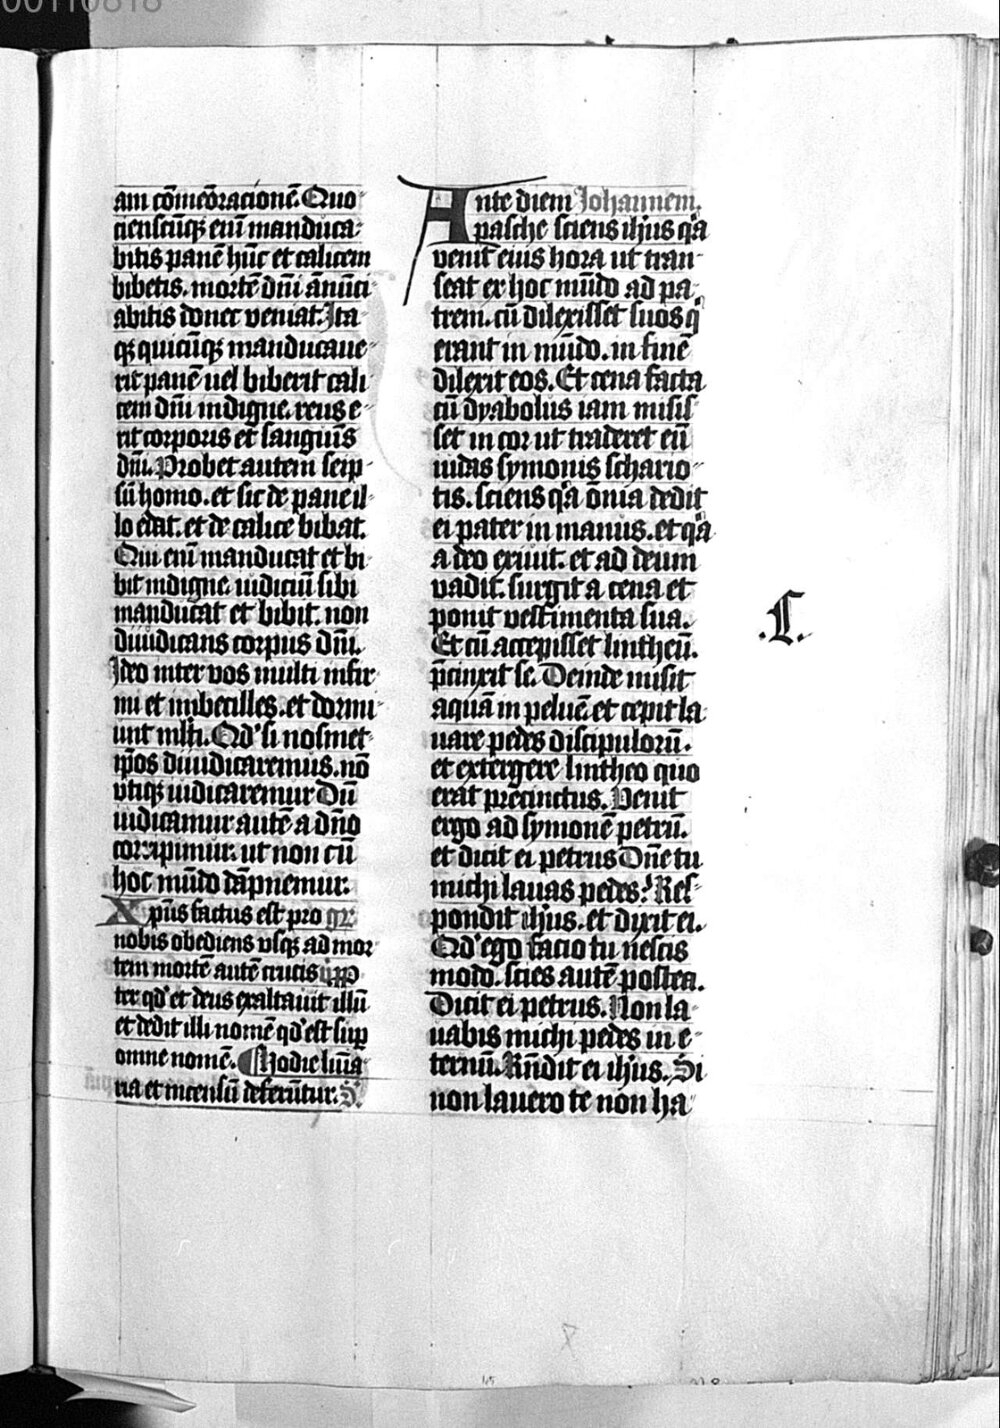 00110818
am co᷒me᷒oracionē. Quo
cienscūqꝫ eni᷒ manduca-
bitis panē hūc et calicem
bibetis. mortē dn̄i ān̄nci
abitis donec veniat. Ita
qꝫ quicūqꝫ manducaue-
rit panē uel biberit cali
cem dn̄i indigne. reus e-
rit corporis et sanguīs
dn̄i. Probet autem seip-
sū homo. et sic de pane il-
lo edat. et de calice bibat.
Qui enī manducat et bi-
bit indigne iudiciū sibi
manducat et bibit. non
diiudicans corpus dn̄i.
Ideo inter vos multi infir-
mi et imbecilles. et dormi-
unt ml̄ti. Qd' si nosmet
ip̄os diiudicaremus. nō
vtiqꝫ iudicaremur Dū
iudicamur autē a dn̄o
corripimur. ut non cū
hoc mūdo dāpnemur.
Xp̄us factus est pro gr̄
nobis obediens vsqꝫ ad mor
tem mortē autē crucis ꝓp
ter qd' et deus exaltauit illū
et dedit illi nomē qd' est suꝑ
omne nomē. Hodie lūīa
ria et incensū deferūtur. S.
Ante diem Johannem.
pasche sciens ihus qͣa
venit eius hora ut tran-
seat ex hoc mūdo ad pa-
trem. cū dilexisset suos q͛
erant in mūdo. in finē
dilexit eos. Et cena facta
cū dyabolus iam misis
set in cor ut traderet eū
iudas symonis schario-
tis. sciens qͣa ōnia dedit
ei pater in manus. et qͣa
a deo exiuit. et ad deum
vadit. surgit a cena et
ponit vestimenta sua.
Et cū accepisset lintheū.
p̄cinxit se. Deinde misit
aquā in peluē et cepit la-
uare pedes discipulorū.
et extergere lintheo quo
erat precinctus. Venit
ergo ad symonē petrū.
et dicit ei petrus Dn̄e tu
michi lauas pedes? Res-
pondit ihus. et dixit ei.
Qd' ego facio tu nescis
modo. scies autē postea.
Dicit ei petrus. Non la-
uabis michi pedes in e-
ternū. Rn̄dit ei ihus. Si
non lauero te non ha